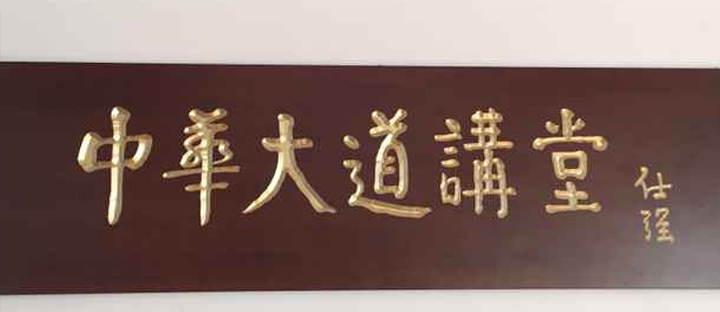 中華大道講堂
仕強